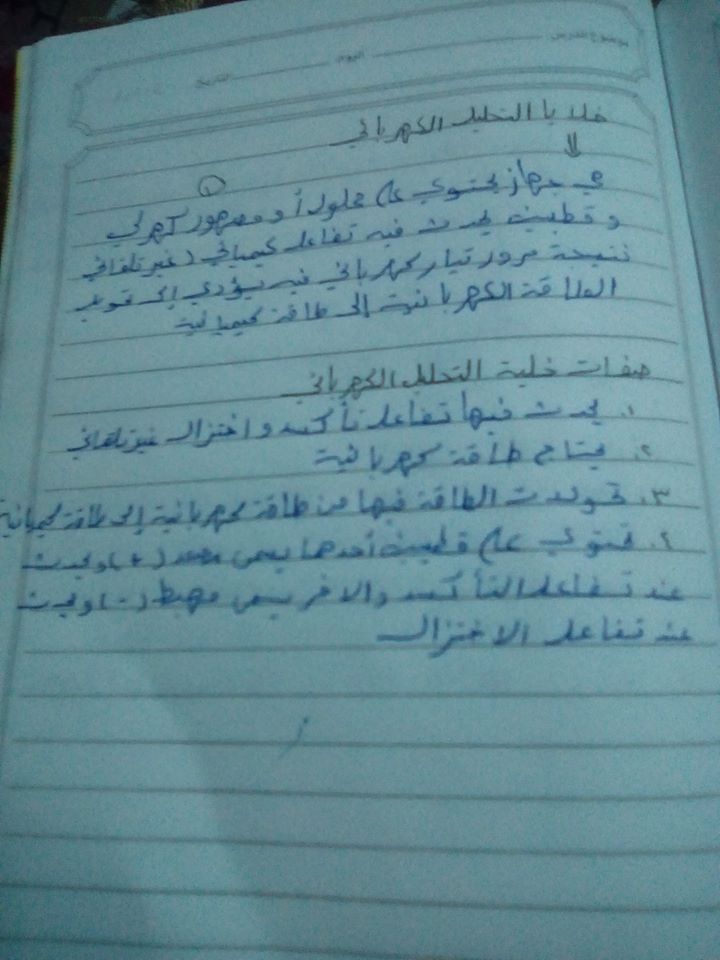 موضوع الدرس اليوم التاريخ
خلايا التحليل الكهربائي
①
هي جهاز يحتوي على محلول أو مصهور كهرلي
وقطبين يحدث فيه تفاعل كيميائي (غير تلقائي
نتيجة مرور تيار كهربائي فيه يؤدي إلى
الطاقة الكهربائية إلى طاقة كيميائية
صفات خلية التحليل الكهربائي
١. يحدث فيها تفاعل تأكسد واختزال غير تلقائي
٢. يحتاج طاقة كهربائية
٣. الطاقة فيها من طاقة كهربائية إلى طاقة كيميائية
٤. تحتوي على قطبين أحدهما يسمى مصعد (+) ويحدث
عنه تفاعل التأكسد والاخر يسمى مهبط (-) ويحدث
عنه تفاعل الاختزال